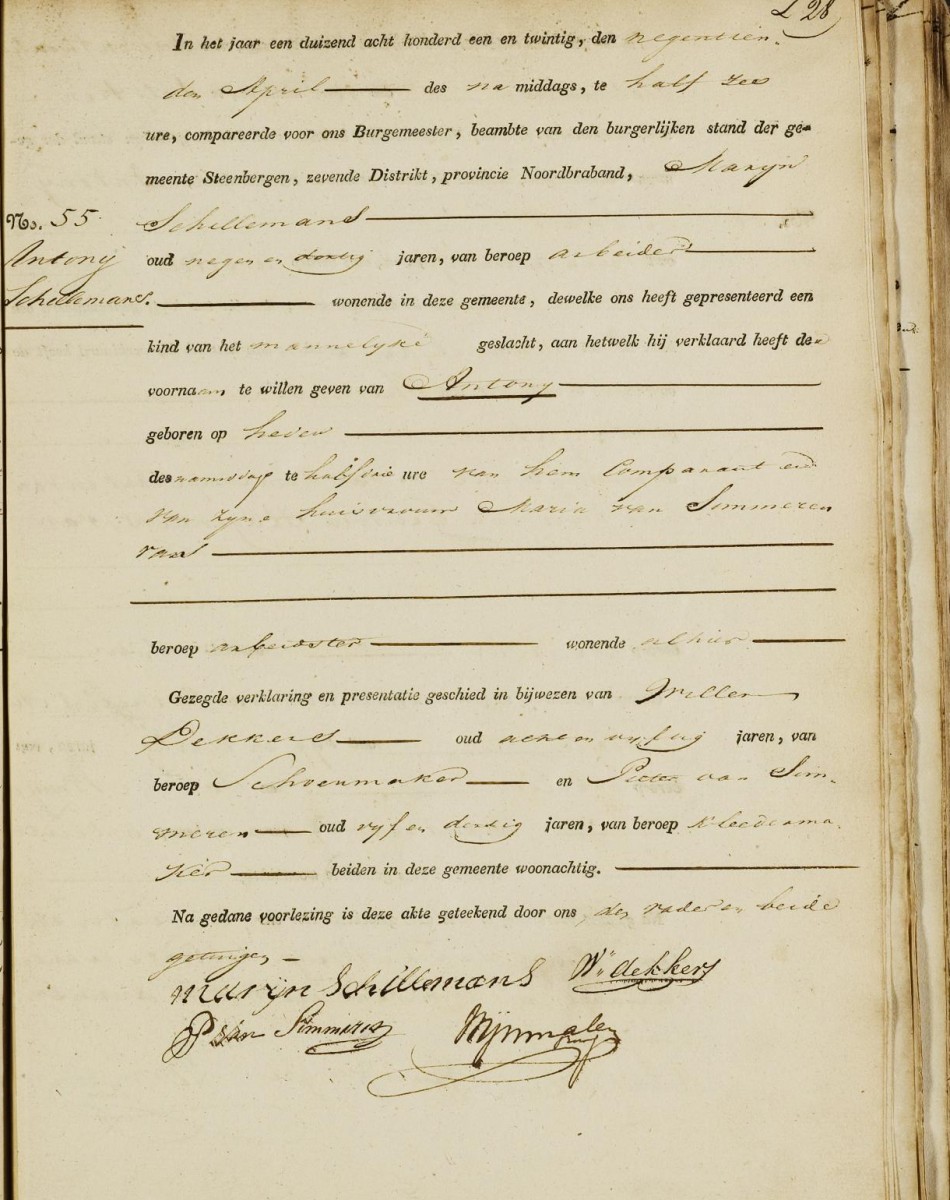 L 28
In het jaar een duizend acht honderd een en twintig, den negentien-
den April des na middags, te half zes
ure, compareerde voor ons Burgemeester, beambte van den burgerlijken stand der ge-
meente Steenbergen, zevende Distrikt, provincie Noordbraband, Maryn
No. 55 Schillemans
Antony oud negen en dertig jaren, van beroep arbeider
Schillemans. wonende in deze gemeente, dewelke ons heeft gepresenteerd een
kind van het mannelyke geslacht, aan hetwelk hij verklaard heeft den
voornaam te willen geven van Antony
geboren op heden
des namiddags te half drie ure van hem Comparant en
van zyne huisvrouw Maria van Simmeren
van
beroep arbeidster wonende alhier
Gezegde verklaring en presentatie geschied in bijwezen van Willem
Dekkers oud acht en vyftig jaren, van
beroep Schoenmaker en Pieter van Sim-
meren oud vyf en dertig jaren, van beroep Kleederma-
ker beiden in deze gemeente woonachtig.
Na gedane voorlezing is deze akte geteekend door ons, den vader en beide
getuigen
Marijn Schillemans Wm dekkers
P van Simmeren